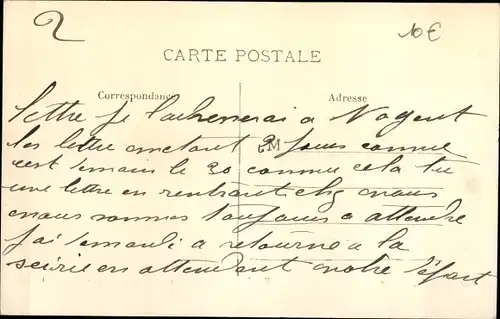 2
10€
CARTE POSTALE
Correspondance
Adresse
lettre je l'acheverai a Nogent
les lettre mettant 3 jours comme
c'est demain le 30 comme cela tu
une lettre en rentrant chez nous
nous sommes toujours a attendre
j'ai demandé a retourne a la
en attendant notre départ
M